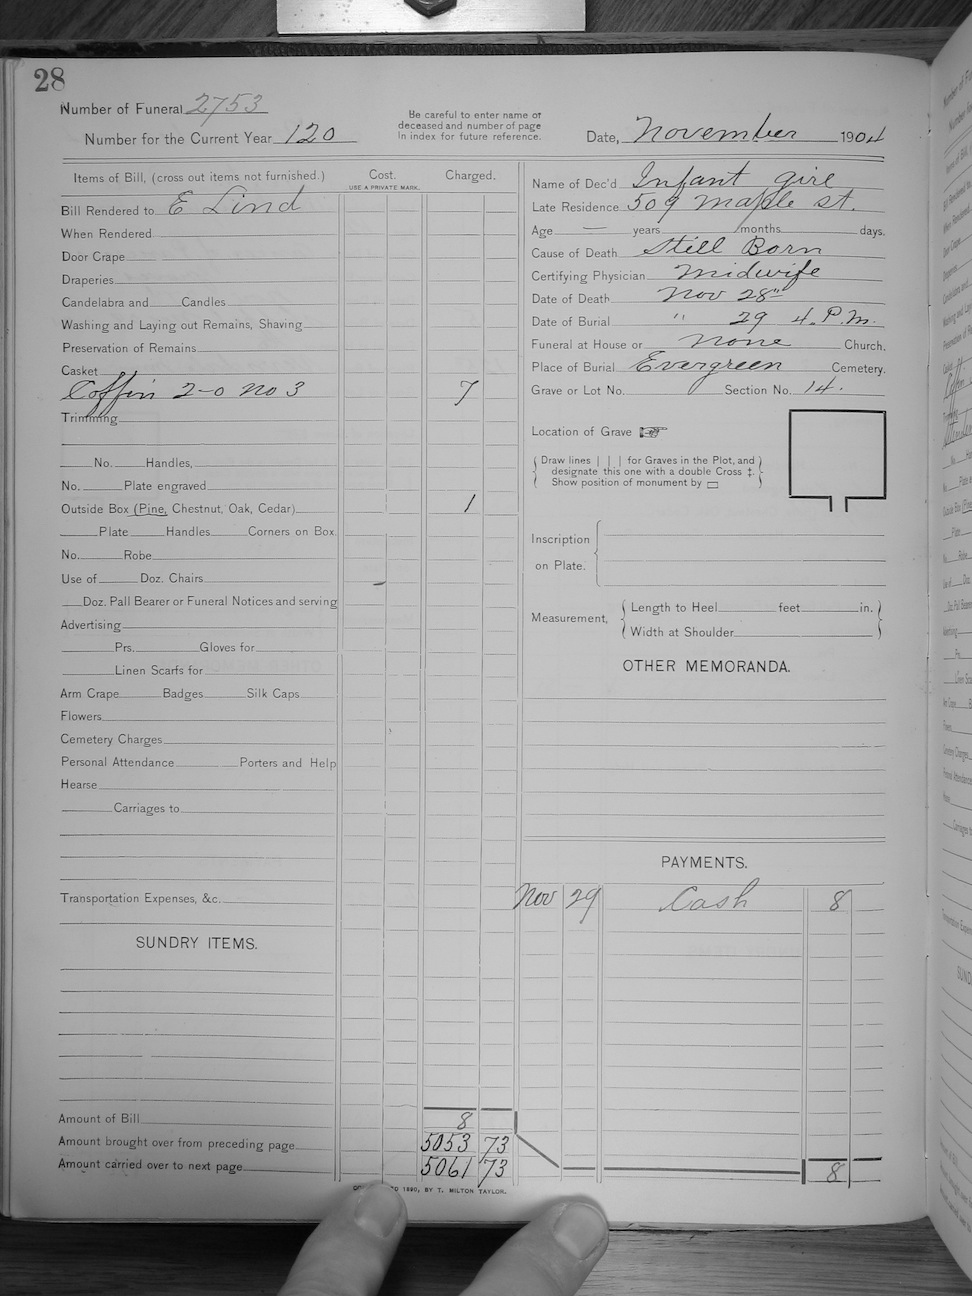 28
Number of Funeral 2753
Number for the Current Year 120
Be careful to enter name of
deceased and number of page
in index for future reference.
Date, November 1904
Items of Bill, (cross out items not furnished.)
Cost.
USE A PRIVATE MARK.
Charged.
Bill Rendered to E Lind
When Rendered
Door Crape
Draperies
Candelabra and Candles
Washing and Laying out Remains, Shaving
Preservation of Remains
Casket
Coffin 2-0 No 3 7
Trimming
No. Handles,
No. Plate engraved
Outside Box (Pine, Chestnut, Oak, Cedar) 1
Plate Handles Corners on Box.
No. Robe
Use of Doz. Chairs
Doz. Pall Bearer or Funeral Notices and serving
Advertising
Prs. Gloves for
Linen Scarfs for
Arm Crape Badges Silk Caps
Flowers
Cemetery Charges
Personal Attendance Porters and Help
Hearse
Carriages to
Transportation Expenses, &c.
SUNDRY ITEMS.
Amount of Bill 8
Amount brought over from preceding page 5053 73
Amount carried over to next page 5061 73
Name of Dec'd Infant girl
Late Residence 509 Maple st.
Age — years months days.
Cause of Death Still Born
Certifying Physician Midwife
Date of Death Nov 28"
Date of Burial " 29 4. P.M.
Funeral at House or None Church.
Place of Burial Evergreen Cemetery.
Grave or Lot No. Section No. 14.
Location of Grave
Draw lines | | | for Graves in the Plot, and
designate this one with a double Cross ‡.
Show position of monument by ▭
Inscription
on Plate.
Measurement,
Length to Heel feet in.
Width at Shoulder
OTHER MEMORANDA.
PAYMENTS.
Nov 29 Cash 8
8
1890, BY T. MILTON TAYLOR.